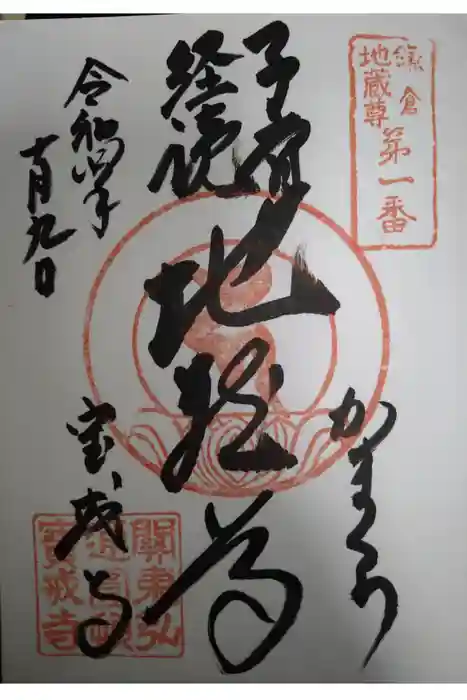 鎌倉
地蔵尊
第一番
子育
経読
地蔵尊
かまくら
令和四年
十月九日
宝戒寺
寶戒寺